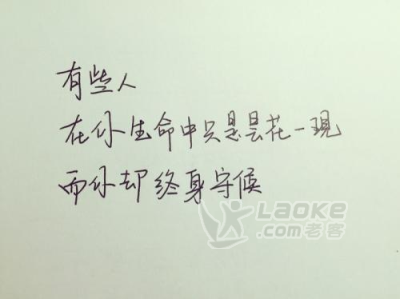 有些人
在你生命中只是昙花一現
而你却终身守候
LAOKE
.com老客